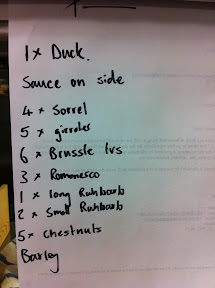 1 x Duck.
Sauce on side
4 x Sorrel
5 x girroles
6 x Brussle lvs
3 x Romonesco
1 x long Ruhbarb
2 x Small Ruhbarb
5 x Chestnuts
Barley